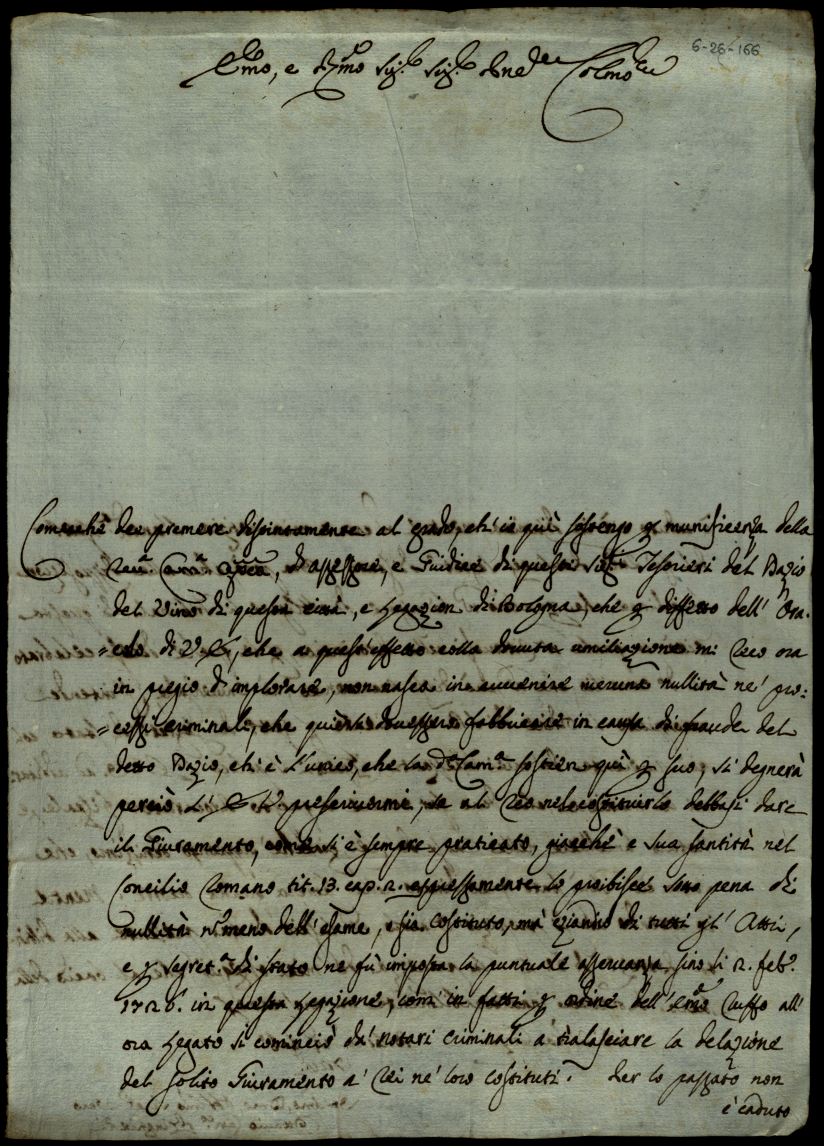 6-26-166
Emo, e Rmo Sig.r Sig.r Pne Colmo
Comecchè dee premere distintamente al grado, ch' io quì sostengo per munificenza della
Rev.a Cam.a Ap.ca, di assessore, e Giudice di questi Sig.ri Tesorieri del Dazio
del Vino di questa città, e Legazion di Bologna, che per diffetto dell' Ora-
=colo di V. E., che a quest' effetto colla dovuta umiliazione mi reco ora
in pregio d' implorare, non nasca in avvenire veruna nullità ne' pro:
=cessi criminali, che quì si dovessero fabbricare in causa di fraude del
detto Dazio, ch' è l' unico, che la d.a Cam.a sostien quì per suo, si degnerà
perciò l' E. V. prescrivermi, se al Reo nel costituirlo debbasi dare
il Giuramento, come si è sempre praticato, giacchè e Sua Santità nel
Concilio Romano tit. 13. cap. 2. espressamente lo proibisce sotto pena di
nullità n.o meno dell' esame, o sia costituto, mà eziandio di tutti gl' Atti,
e per Segret.a di Stato ne fù imposta la puntuale osservanza sino li 2. feb.o
1726. in questa Legazione, com' in fatti per ordine dell' Emo Ruffo all'
ora Legato si cominciò da' notari criminali a tralasciare la delazione
del solito Giuramento a' Rei ne' loro costituti. Per lo passato non
è caduto